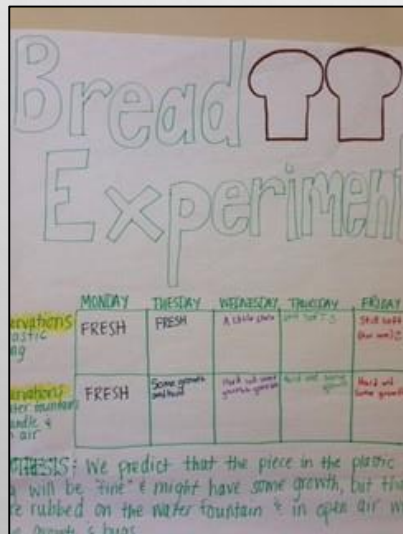 Bread
Experiment
MONDAY TUESDAY WEDNESDAY THURSDAY FRIDAY
ervations
astic
ag
FRESH FRESH A little stale Still soft
ervations
ater fountain
andle &
air
FRESH Some growth and hard Hard and some growth Hard and some growth Hard and some growth
OTHESIS: We predict that the piece in the plastic
will be "fine" & might have some growth, but the
e rubbed on the water fountain & in open air w
growth & bugs